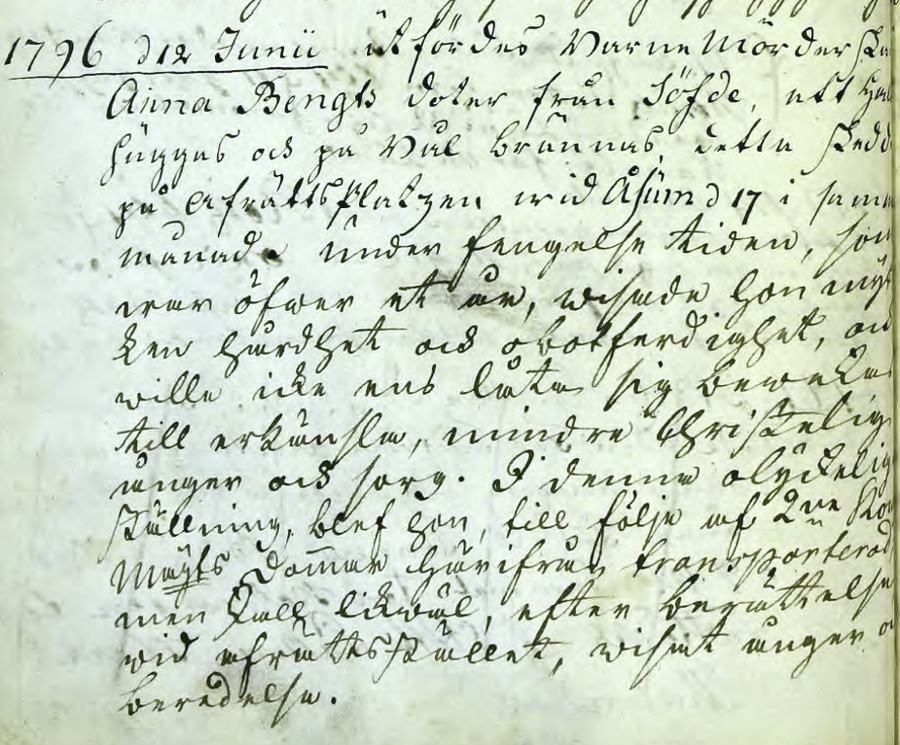 1796 d 12 Junii utfördes Barnemörderska
Anna Bengts doter från Söfde, att hal
huggas och på Bål brännas, detta skedd
på Afrättsplatzen wid Åsum d 17 i samm
månad. under fengelse tiden, som
war öfwer et år, wisade hon myc
ken hårdhet och obotferdighet, och
wille icke ens låta sig beweka
till erkänsla, mindre Christelig
ånger och sorg. I denna olyckelig
ställning, blef hon, till följe af 2ne Kon
Mayts Dommar härifrån transporterad
men skall likwäl, efter berättelse
wid afrättsstället, wisat ånger o
beredelse.